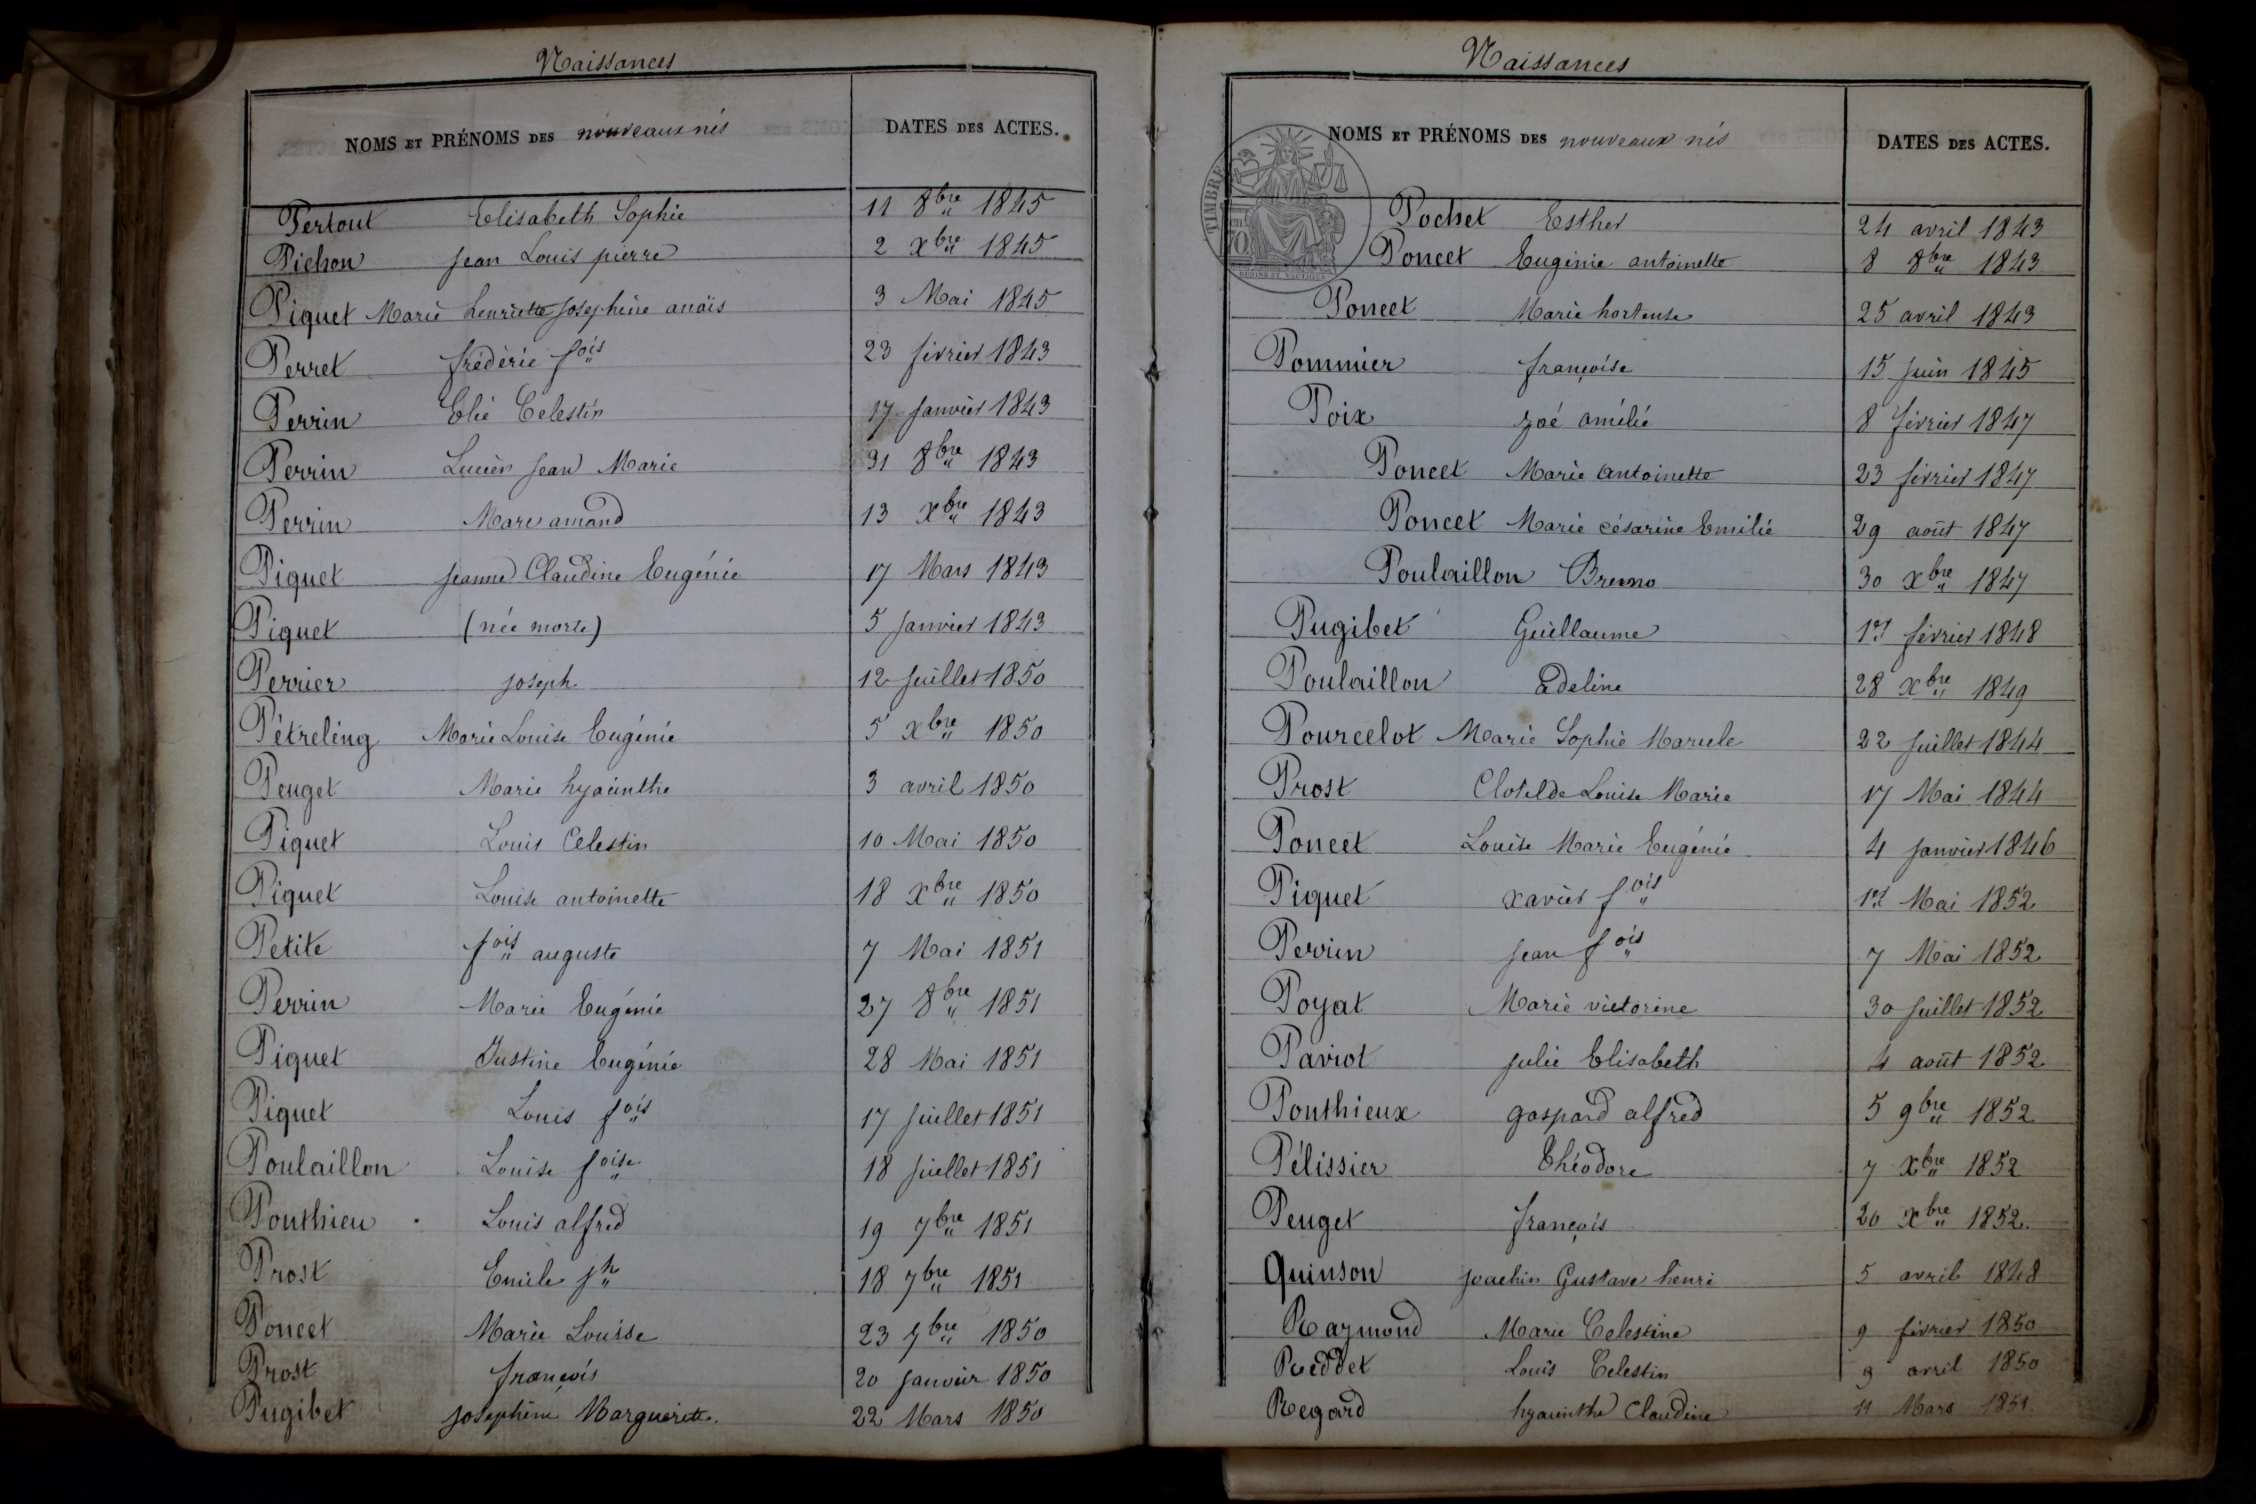 Naissances
NOMS ET PRÉNOMS DES nouveaux nés DATES DES ACTES.
Pertout Elisabeth Sophie 11 8bre 1845
Pichon jean Louis pierre 2 xbre 1845
Piquet Marie henriette josephine anaïs 3 Mai 1845
Perret frédéric fois 23 février 1843
Perrin Elie Celestin 17 janvier 1843
Perrin Lucien jean Marie 31 8bre 1843
Perrin Marc amand 13 xbre 1843
Piquet jeanne Claudine Eugénie 17 Mars 1843
Piquet (née morte) 5 janvier 1843
Perrier joseph 12 juillet 1850
Pétreling Marie Louise Eugénie 5 xbre 1850
Peuget Marie hyacinthe 3 avril 1850
Piquet Louis Celestin 10 Mai 1850
Piquet Louise antoinette 18 xbre 1850
Petite fois auguste 7 Mai 1851
Perrin Marie Eugénie 27 8bre 1851
Piquet Justine Eugénie 28 Mai 1851
Piquet Louis fois 17 juillet 1851
Poulaillon Louise foise 18 juillet 1851
Ponthieu Louis alfred 19 7bre 1851
Prost Emile jh 18 7bre 1851
Poncet Marie Louise 23 7bre 1850
Prost françois 20 janvier 1850
Pugibet josephine Marguerite. 22 Mars 1850
Naissances
NOMS ET PRÉNOMS DES nouveaux nés DATES DES ACTES.
TIMBRE
Pochet Esther 24 avril 1843
Poncet Eugenie antoinette 8 8bre 1843
Poncet Marie hortense 25 avril 1843
Pommier françoise 15 juin 1845
Poix zoé amélie 8 février 1847
Poncet Marie antoinette 23 février 1847
Poncet Marie césarine Emilie 29 août 1847
Poulaillon Bruno 30 xbre 1847
Pugibet Guillaume 1er février 1848
Poulaillon Edeline 28 xbre 1849
Pourcelot Marie Sophie Marcele 22 juillet 1844
Prost Clotilde Louise Marie 17 Mai 1844
Poncet Louise Marie Eugénie 4 janvier 1846
Piquet xavier fois 1er Mai 1852
Perrin jean fois 7 Mai 1852
Poyat Marie victorine 30 juillet 1852
Paviot julie Elisabeth 4 août 1852
Ponthieux gaspard alfred 5 9bre 1852
Pélissier Théodore 7 xbre 1852
Peuget françois 20 xbre 1852.
Quinson joachin Gustave henri 5 avril 1848
Raymond Marie Celestine 9 février 1850
Reddet Louis Celestin 9 avril 1850
Regard hyacinthe Claudine 11 Mars 1851